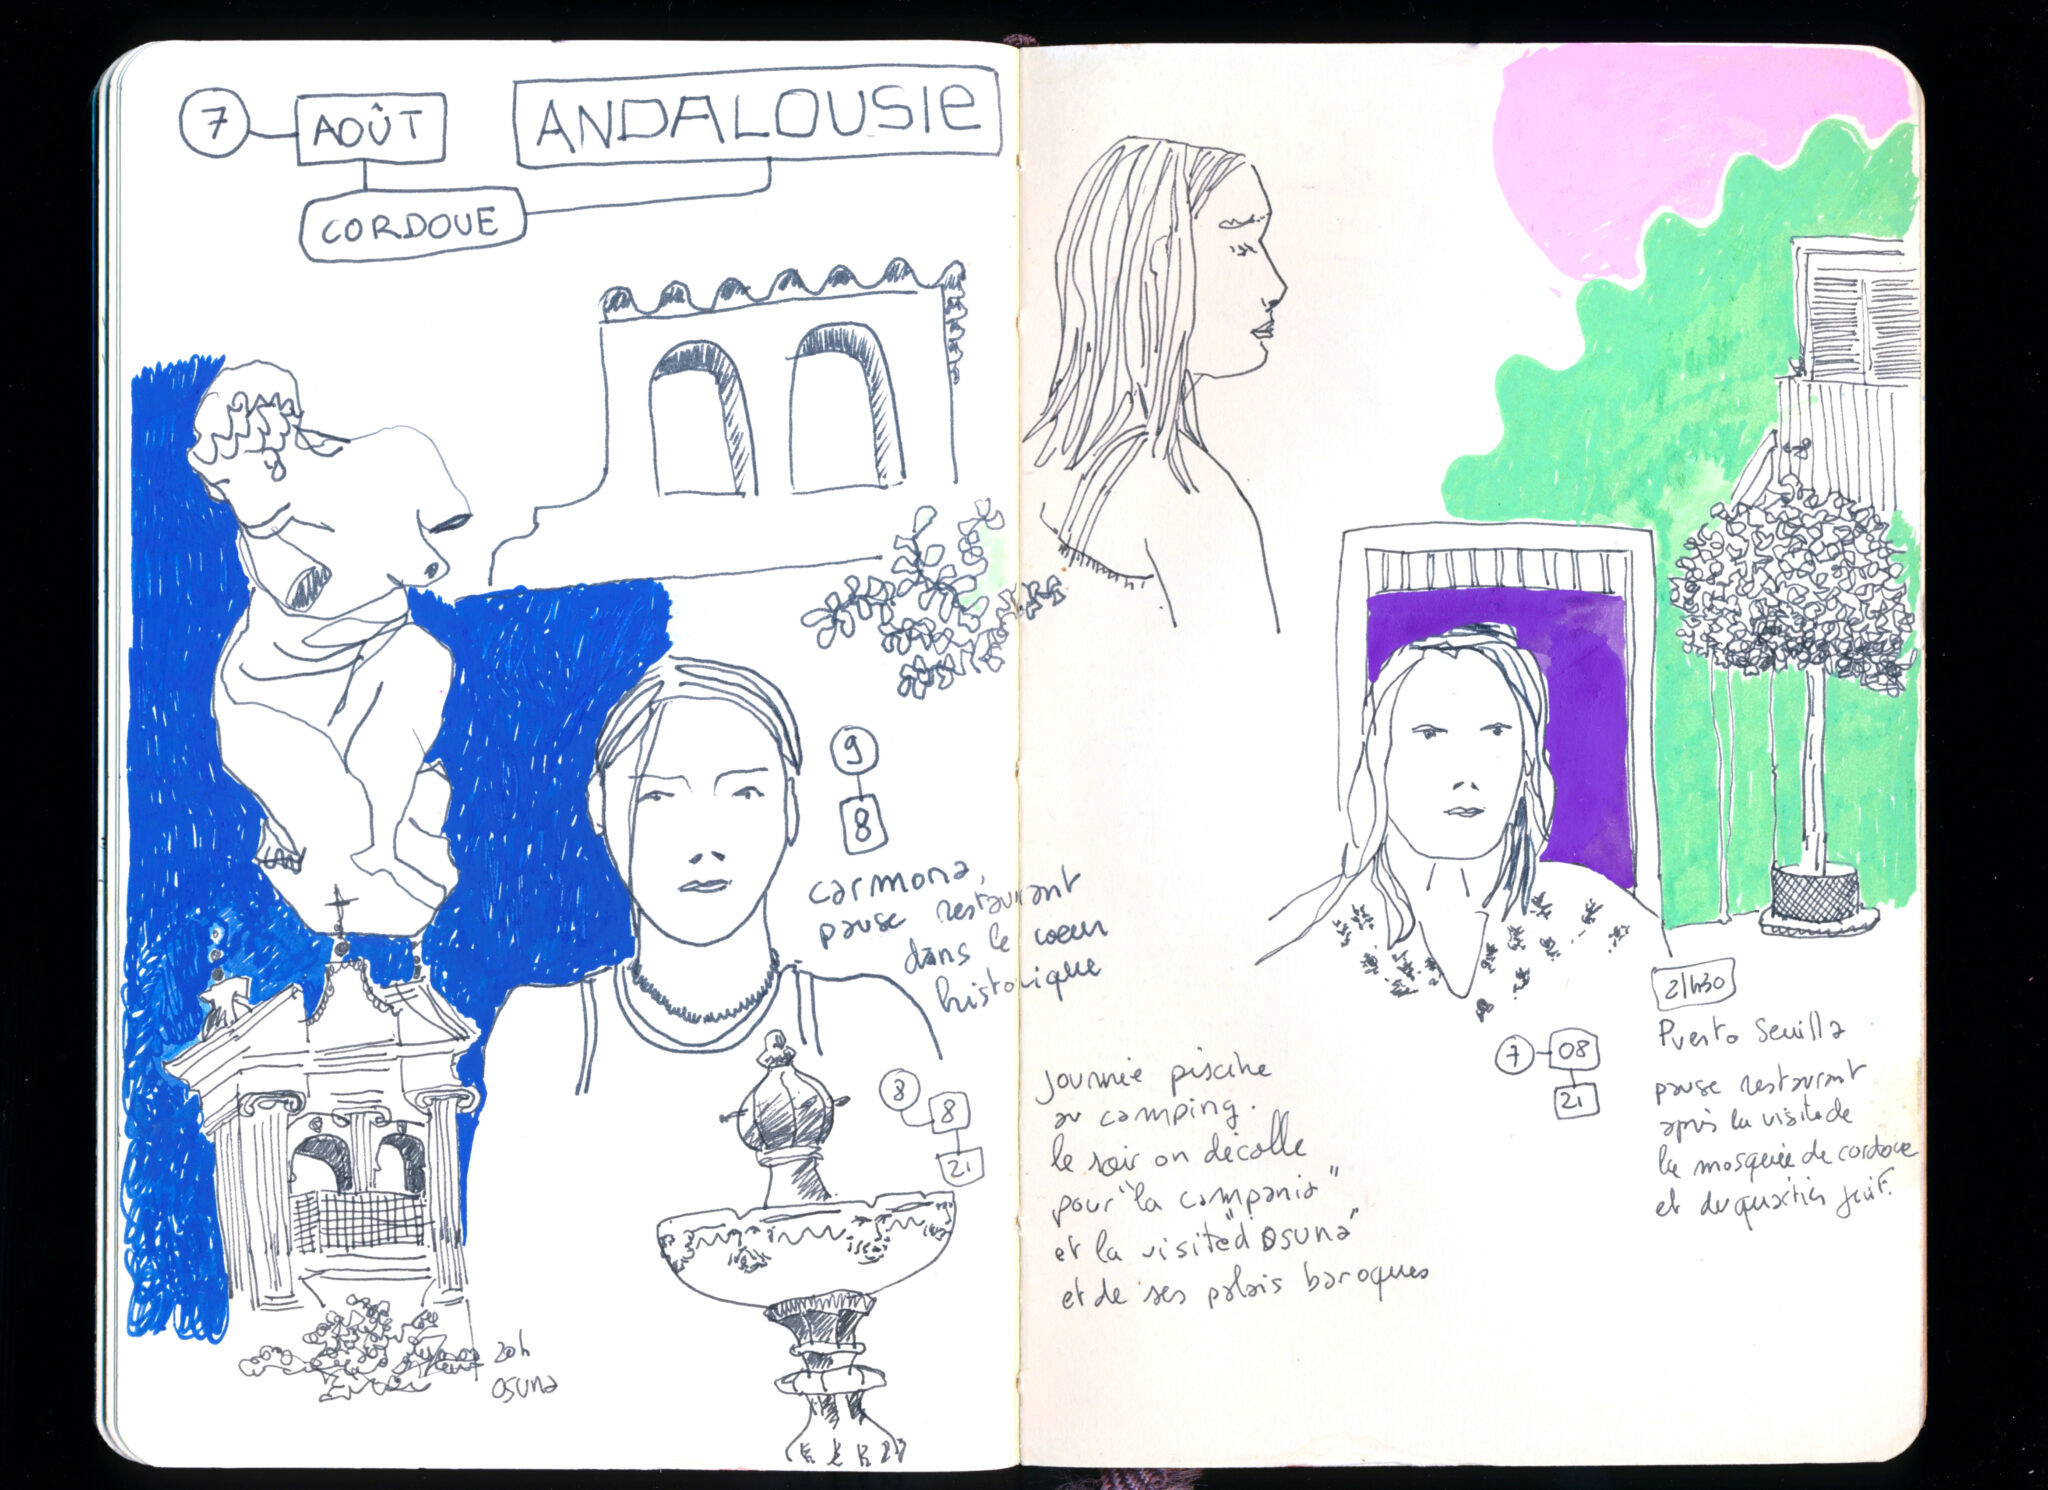 7
AOÛT
ANDALOUSIE
CORDOUE
9
8
carmona,
pause restaurant
dans le coeur
historique
8
8
21
20h
osuna
journée piscine
au camping.
le soir on décolle
pour "la campania"
et la visite d'"osuna"
et de ses palais baroques
7
08
21
21h30
Puerto Sevilla
pause restaurant
après la visite de
la mosquée de cordoue
et du quartier juif.